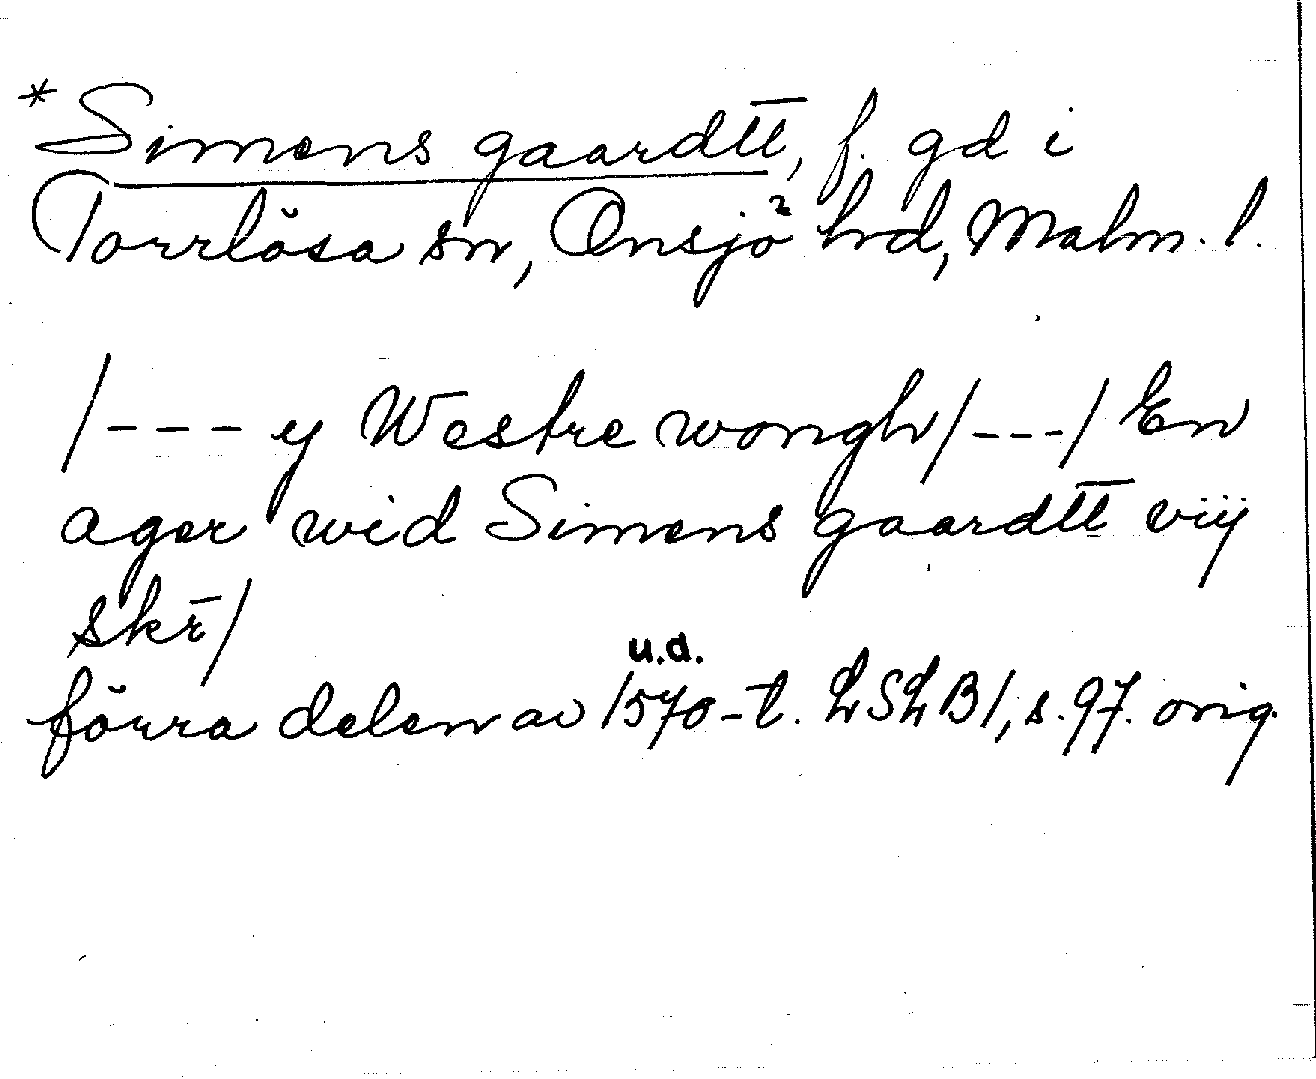 *Simens gaardt̅t̅, f. gd i
Torrlösa sn, Onsjö hrd, Malm. l.
/--- y Westre wongh/---/ En
ager wid Simens gaardt̅t̅ vij
skr̅/
u.d.
förra delen av 1570-t. LSLB1, s. 97. orig.